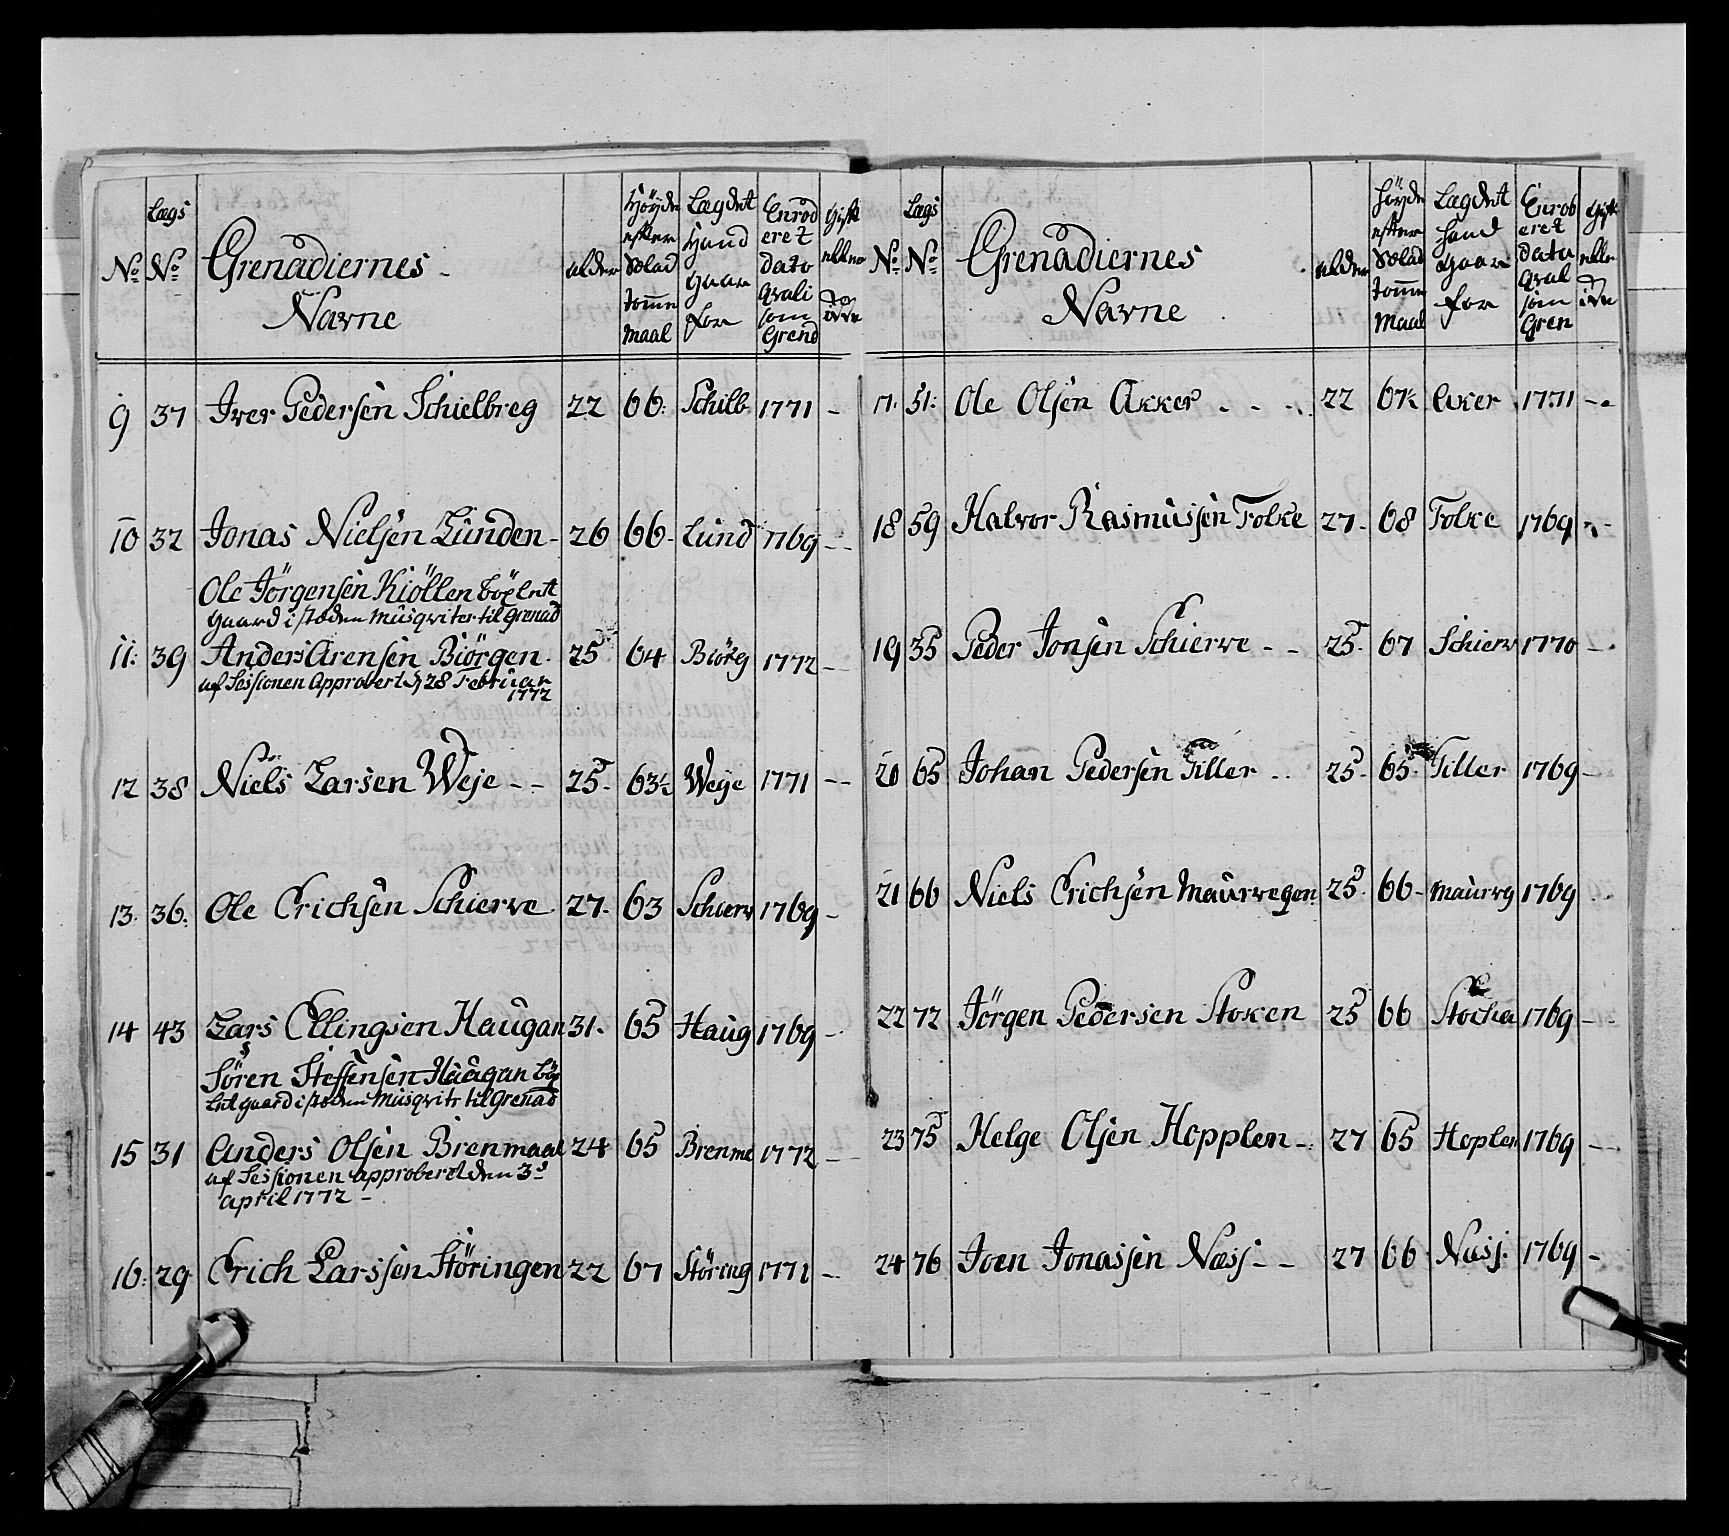 Lægs
No No Grenadiernes Navne alder Høyde efter Sælad tomme maal Lægdet Hand gaar for Enrod eret Dato qvali som Grend gift eller
9 37 Iver Pedersen Schielbreg 22 66: Schilb 1771 -
10 32 Jonas Nielsen Lunden - 26 66- Lund 1769 --
Ole Jörgensen Kiöllen
gaard i stæden Musqviter til Grenad
11: 39 Anders Arensen Biörgen. 25 64 Biörg 1772 --
af Sessionen Approbert d 28 Februar
1772
12 38 Niels Larsen Weje -- 25- 63½ Weje 1771 --
13. 36. Ole Erichsen Schierve 27- 63 Schierv 1769 -
14 43 Lars Ellingsen Haugan 31. 65 Haug 1769 -
Sören Steffensen Haagan
gaard i stæden Musqvitr til Grenad
15 31 Anders Olsen Brenmaal 24 65 Brenme 1772 --
af Sessionen approberet den 3d
april 1772 -
16: 29 Erich Larssen Störingen 22 67 Störing 1771 --
Lægs
No No Grenadiernes Navne alder Høyde efter Sælad tomme Maal Lægdet Hand gaar for Enrod eret Data qval som Gren gift elle
17. 51: Ole Olsen Akker - - - 22 67½ Aker 1771 --
18 59 Halvor Rasmussen Folke 27- 68 Folke 1769 --
19 35 Peder Jonsen Schierve - - 25. 67 Schierv 1770 -.
20 65 Johan Pedersen Tiller .. 25- 65. Tiller 1769 -
21 66 Niels Erichsen Maurvegen 25. 66- Maurvg 1769 ..
22 72 Jörgen Pedersen Stoken 25 66 Stocka 1769 --
23 75 Helge Olsen Hopplen -. 27 65 Hoplen 1769 --
24 76 Joen Jonassen Næss - - 27 66 Næss. 1769 -